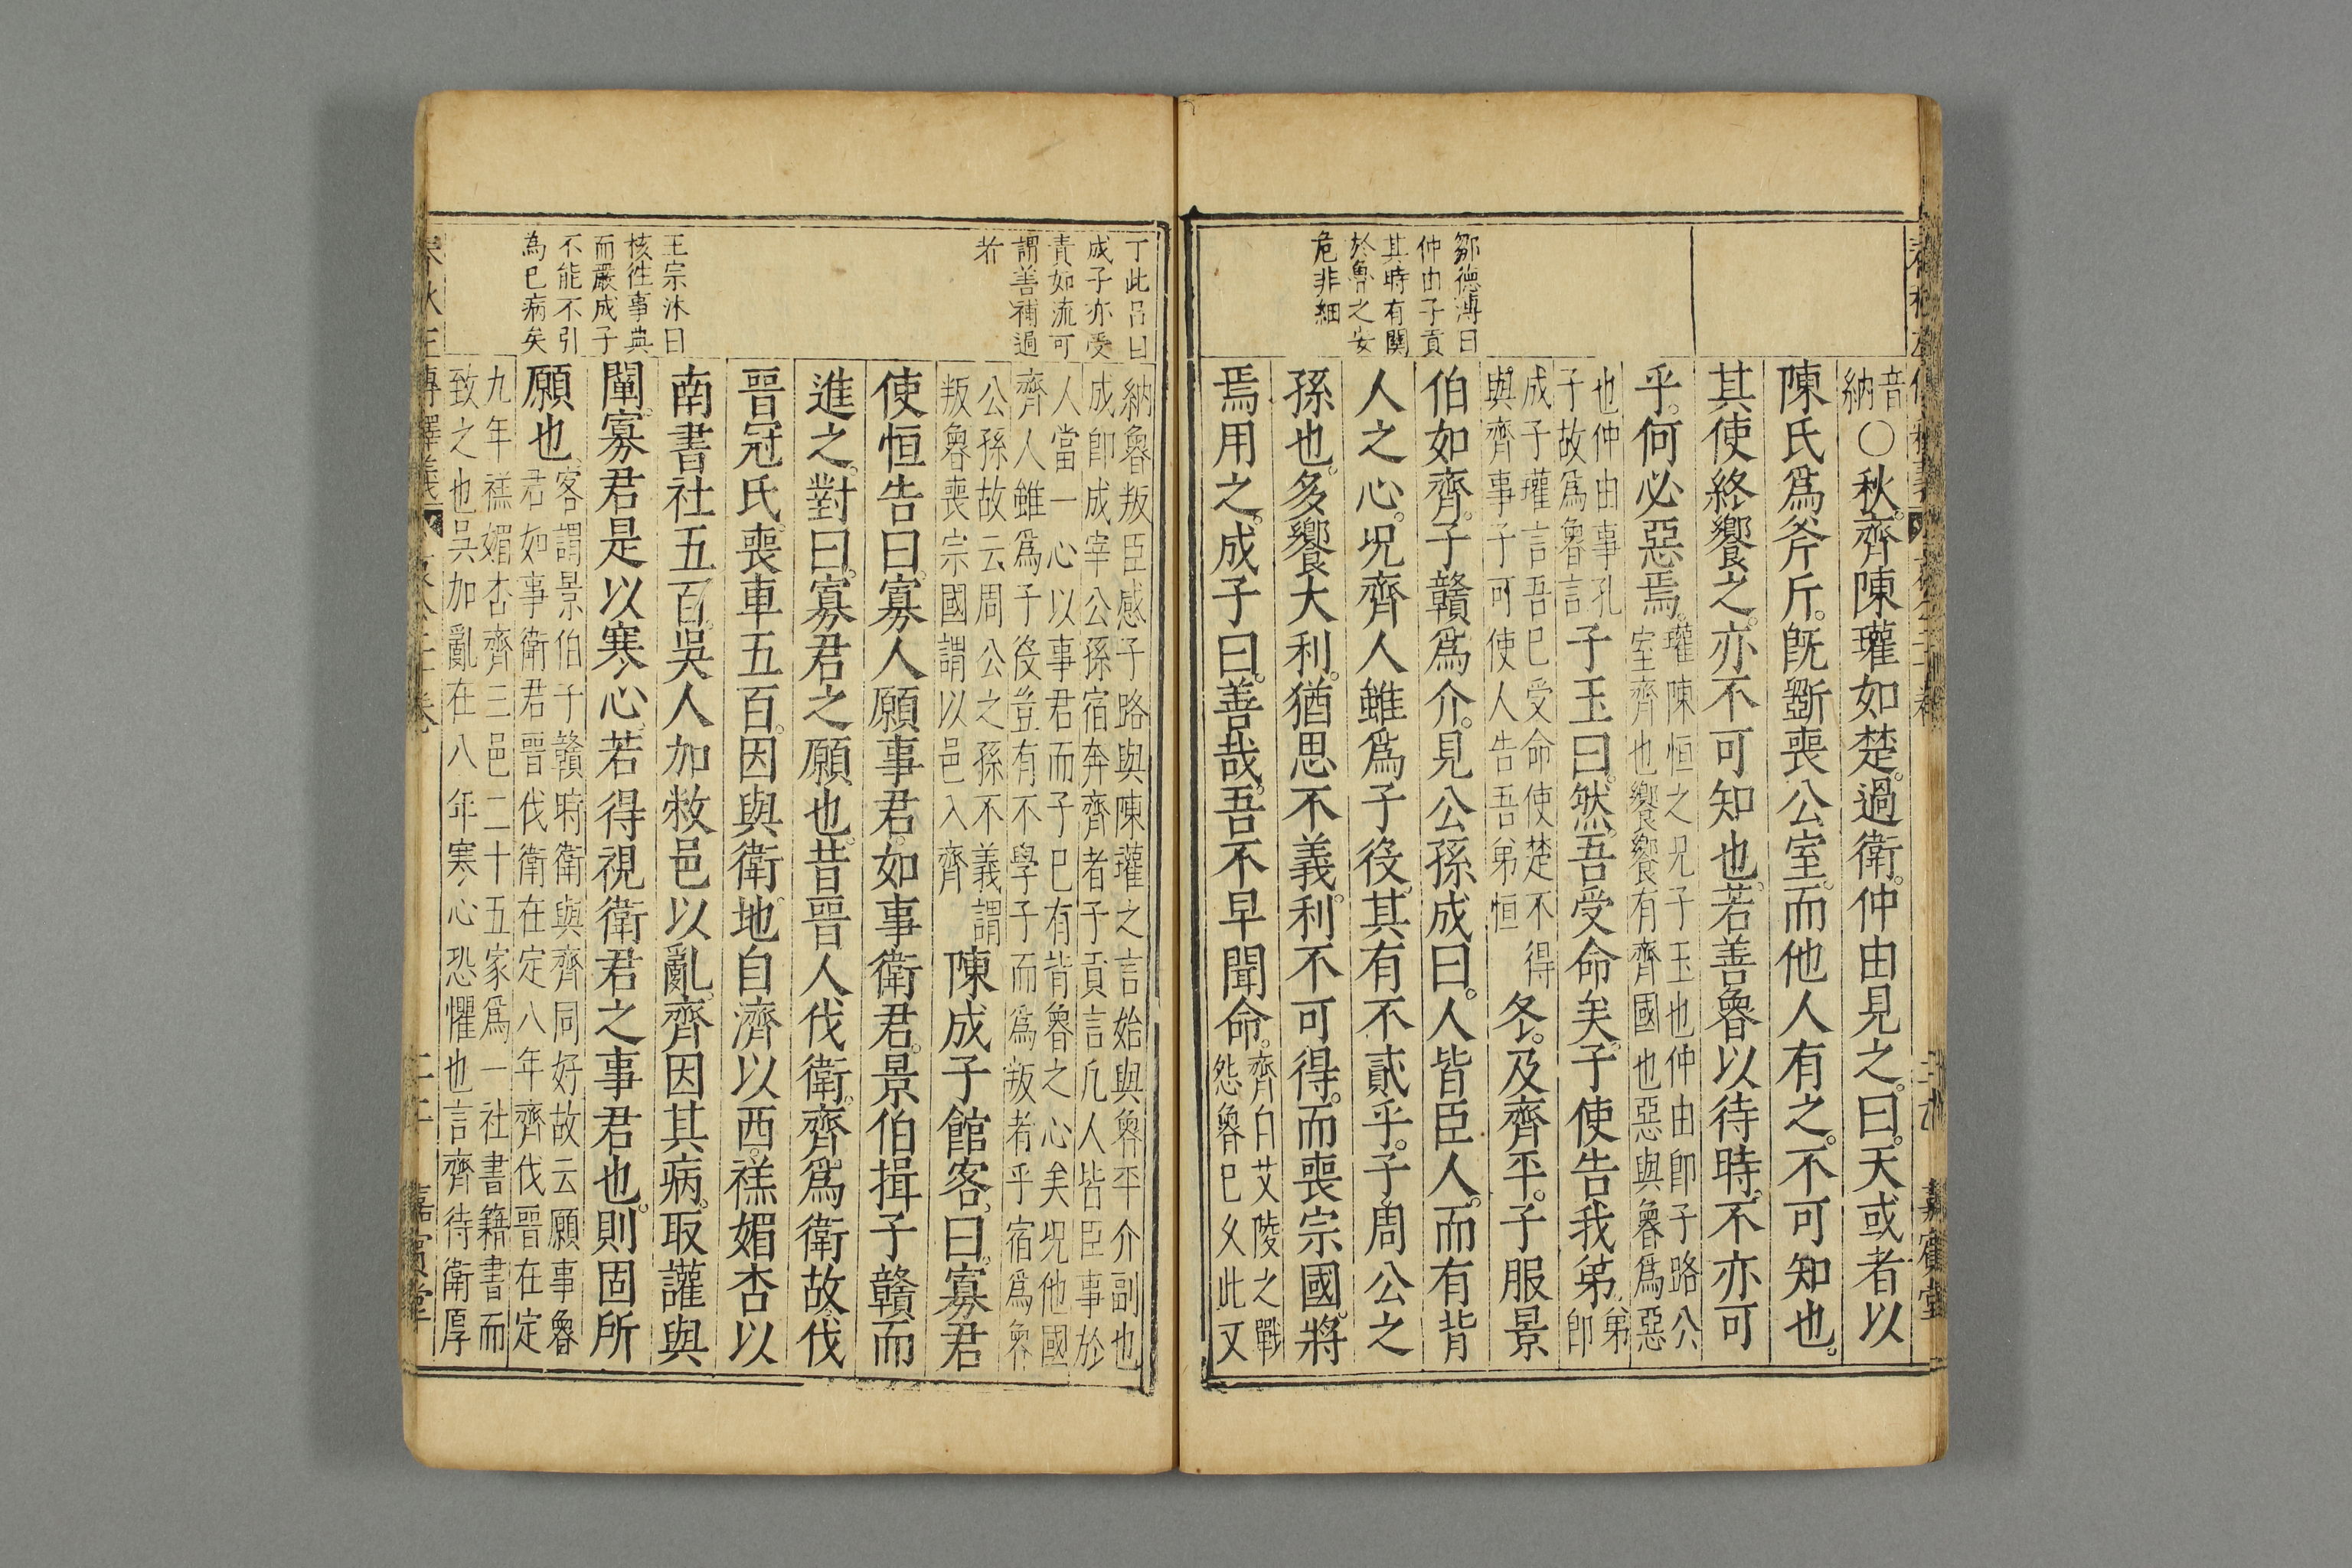 鄒德溥曰
仲由子貢
其時有關
於魯之安
危非細
音納○秋齊陳瓘如楚過衛仲由見之曰天或者以
陳氏爲斧斤旣斲喪公室而他人有之不可知也
其使終饗之亦不可知也若善魯以待時不亦可
乎何必惡焉瓘陳恒之兄子玉也仲由卽子路公
室齊也饗饗有齊國也惡與魯爲惡
也仲由事孔
子故爲魯言子玉曰然吾受命矣子使告我弟弟
卽
成子瓘言吾已受命使楚不得
與齊事子可使人告吾弟恒冬及齊平子服景
伯如齊子贛爲介見公孫成曰人皆臣人而有背
人之心况齊人雖爲子役其有不貳乎子周公之
孫也多饗大利猶思不義利不可得而喪宗國將
焉用之成子曰善哉吾不早聞命齊自艾陵之戰
怨魯巳乆此又
丁此呂曰
成子亦受
責如流可
謂善補過
者
王宗沐曰
核徃事典
而嚴成子
不能不引
為已病矣
納魯叛臣感子路與陳瓘之言始與魯平介副也
成卽成宰公孫宿奔齊者子貢言凢人皆臣事於
人當一心以事君而子巳有背魯之心矣况他國
齊人雖爲子役豈有不學子而爲叛者乎宿爲魯
公孫故云周公之孫不義謂
叛魯喪宗國謂以邑入齊陳成子館客曰寡君
使恒告曰寡人願事君如事衛君景伯揖子贛而
進之對曰寡君之願也昔晉人伐衛齊爲衛故伐
晉冠氏喪車五百因與衛地自濟以西禚媚杏以
南書社五百吳人加敝邑以亂齊因其病取讙與
闡寡君是以寒心若得視衛君之事君也則固所
願也客謂景伯子贛時衛與齊同好故云願事魯
君如事衛君晉伐衛在定八年齊伐晉在定
九年禚媚杏齊三邑二十五家爲一社書籍書而
致之也吳加亂在八年寒心恐懼也言齊待衛厚